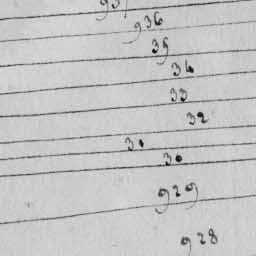 937
936
35
34
33
32
31
30
929
928